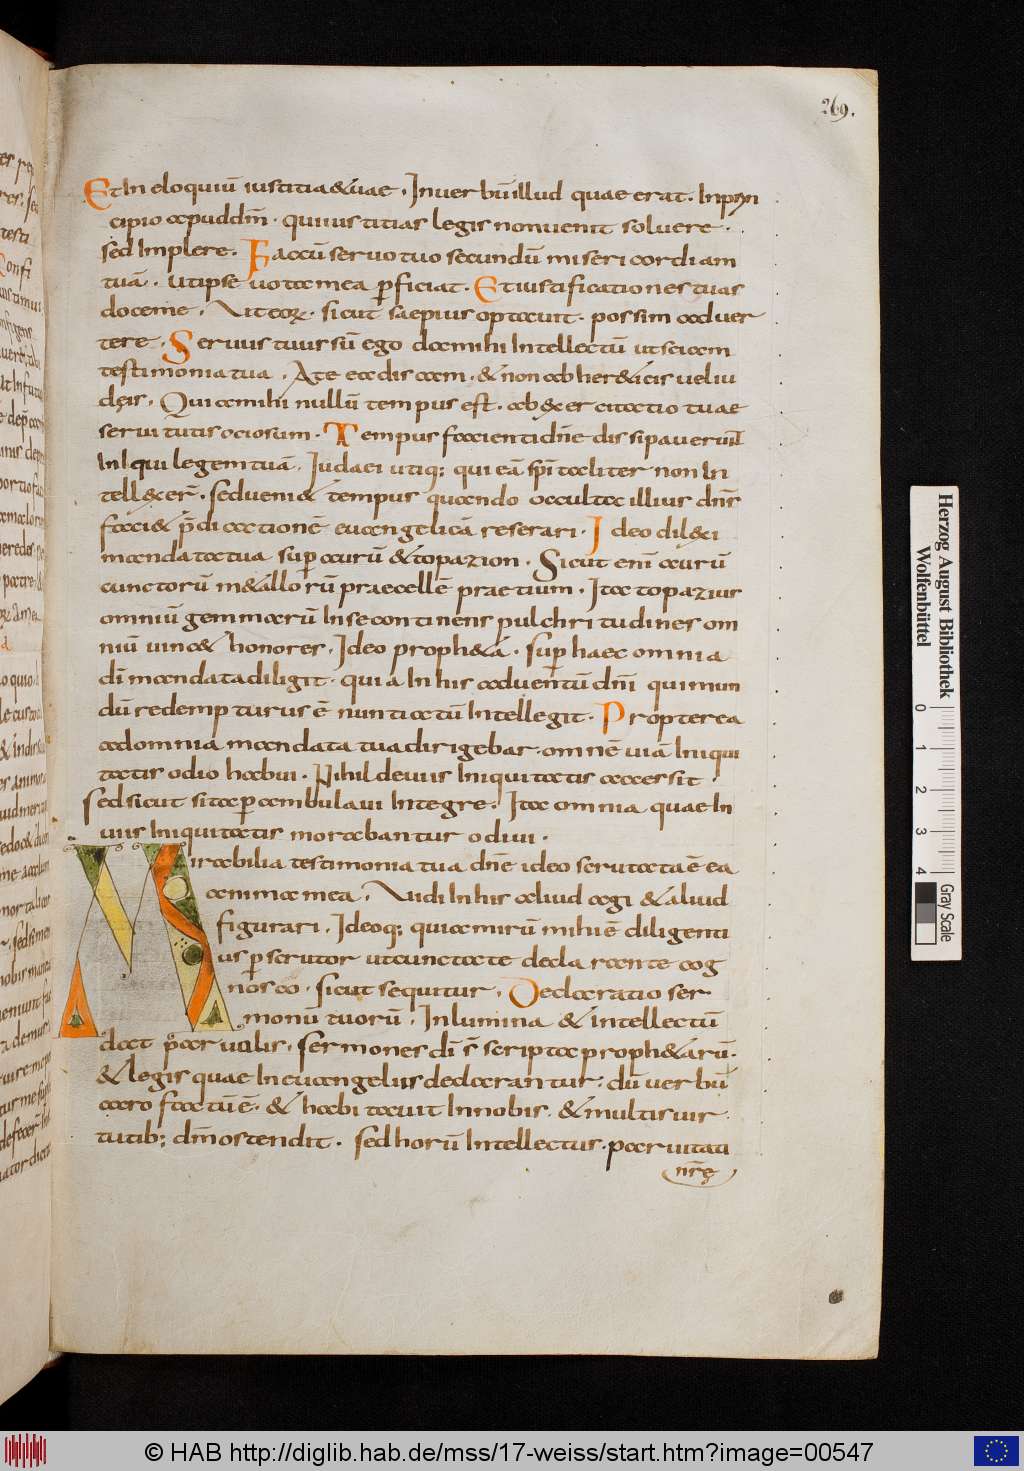 269.
Et In eloquiū iustitia& uae . In uerbū illud quae erat . In prin
cipio apud dm̄ . qui iustitias legis non uenit soluere .
sed Implere . Fac cū seruo tuo secundū misericordiam
tuā . ut ipse uota mea ꝑficiat . Et iustificationes tuas
doce me . Ut eorꝝ . sicut saepius optauit . possim aduer
tere . Seruus tuus sū ego da mihi Intellectū ut sciam
testimonia tua . A te ea discam . & non ab her&icis uel iu
dęis . Qui a mihi nullū tempus est . ab ex ercitatio tuae
seruitutis ociosum . Tempus faciendi dn̄e dissipauerunt
In Iqui legem tuā . Iudaei utiq; qui eā spı̄taliter non In
tell&xer̄ . sed ueni& tempus quando occulta illius dn̄s
faci& p̄dicationē euangelicā reserari . Ideo dil&xi
mandata tua . suꝑ aurū & topazion . Sicut enī aurū
cunctorū m&allorū praecellē praetium . Ita topazius
omniū gemmarū In se continens pulchritudines om
niū uinc& honores . Ideo proph&a . suꝑ haec omnia
dı̄ mandata diligit . quia In his aduentū dn̄i qui mun
dū redempturus ē nuntiatū Intellegit . Propterea
ad omnia mandata tua dirigebar . omnē uiā Iniqui
tatis odio habui . Nihil de uiis Iniquitatis accersit .
sed sicut sita ꝑambulaui Integre . Ita omnia quae In
uiis Iniquitatis morabantur odiui .
Mirabilia testimonia tua dn̄e ideo scrutata ē ea
anima mea . Uidi In his aliud agi & aliud
figurari . Ideoq; quia mirū mihi ē diligenti
us ꝑscrutor ut cunctate declarante cog
nosco . sicut sequitur . Declaratio ser
monū tuorū . Inlumina & intellectū
dat paruulis . sermones dı̄ s̄ scripta proph&arū .
& legis quae In euangeliis declarantur . dū uerbū
caro factū ē . & habitauit In nobis . & multis uir
tutib; dm̄ ostendit . sed horū Intellectus . paruitati
nr̄ę
Herzog August Bibliothek
Wolfenbüttel
0 1 2 3 4
Gray Scale
© HAB http://diglib.hab.de/mss/17-weiss/start.htm?image=00547